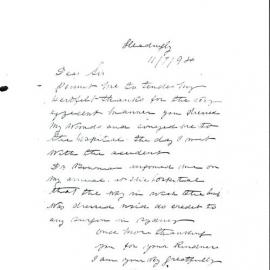 11/7/920
Dear Sir
Permit me to tender my
heartfelt thanks for the very
efficient manner you dressed
my wounds and conveyed me to
the Hospital the day I met
with the accident
Dr Bowman informed me on
my arrival at the Hospital
that the way in which the leg
was dressed would do credit to
any Surgeon in Sydney
Once more thanking
you for your kindness
I am yours very gratefully